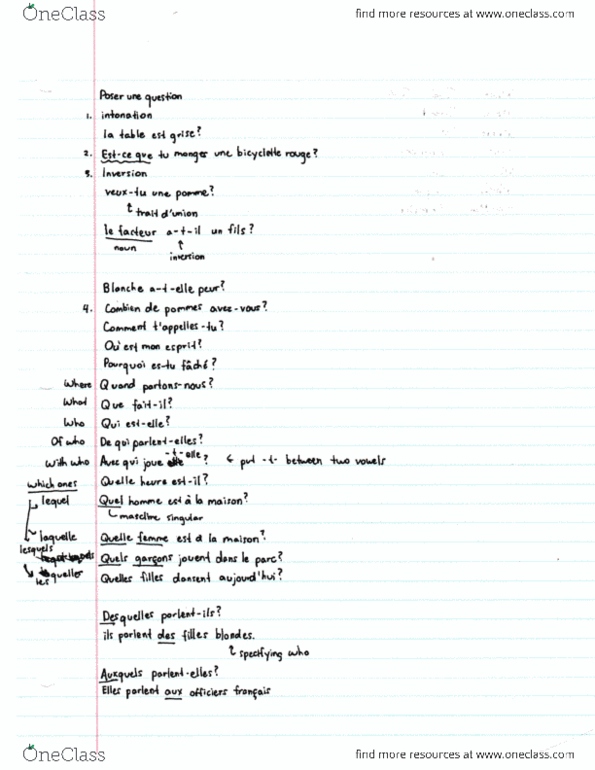 OneClass
find more resources at www.oneclass.com
Poser une question
1. intonation
la table est grise?
2. Est-ce que tu manger une bicyclette rouge?
3. Inversion
veux-tu une pomme?
trait d'union
le facteur a-t-il un fils?
noun
inversion
Blanche a-t-elle peur?
4. Combien de pommes avez-vous?
Comment t'appelles-tu?
Où est mon esprit?
Pourquoi es-tu fâché?
Where Quand partons-nous?
What Que fait-il?
Who Qui est-elle?
Of who De qui parlent-elles?
With who Avec qui joue -t-elle? put -t- between two vowels
which ones Quelle heure est-il?
lequel Quel homme est à la maison?
mascline singular
laquelle Quelle femme est à la maison?
lesquels Quels garçons jouent dans le parc?
lesquelles Quelles filles dansent aujourd'hui?
Desquelles parlent-ils?
ils parlent des filles blondes.
specifying who
Auxquels parlent-elles?
Elles parlent aux officiers français
OneClass
find more resources at www.oneclass.com